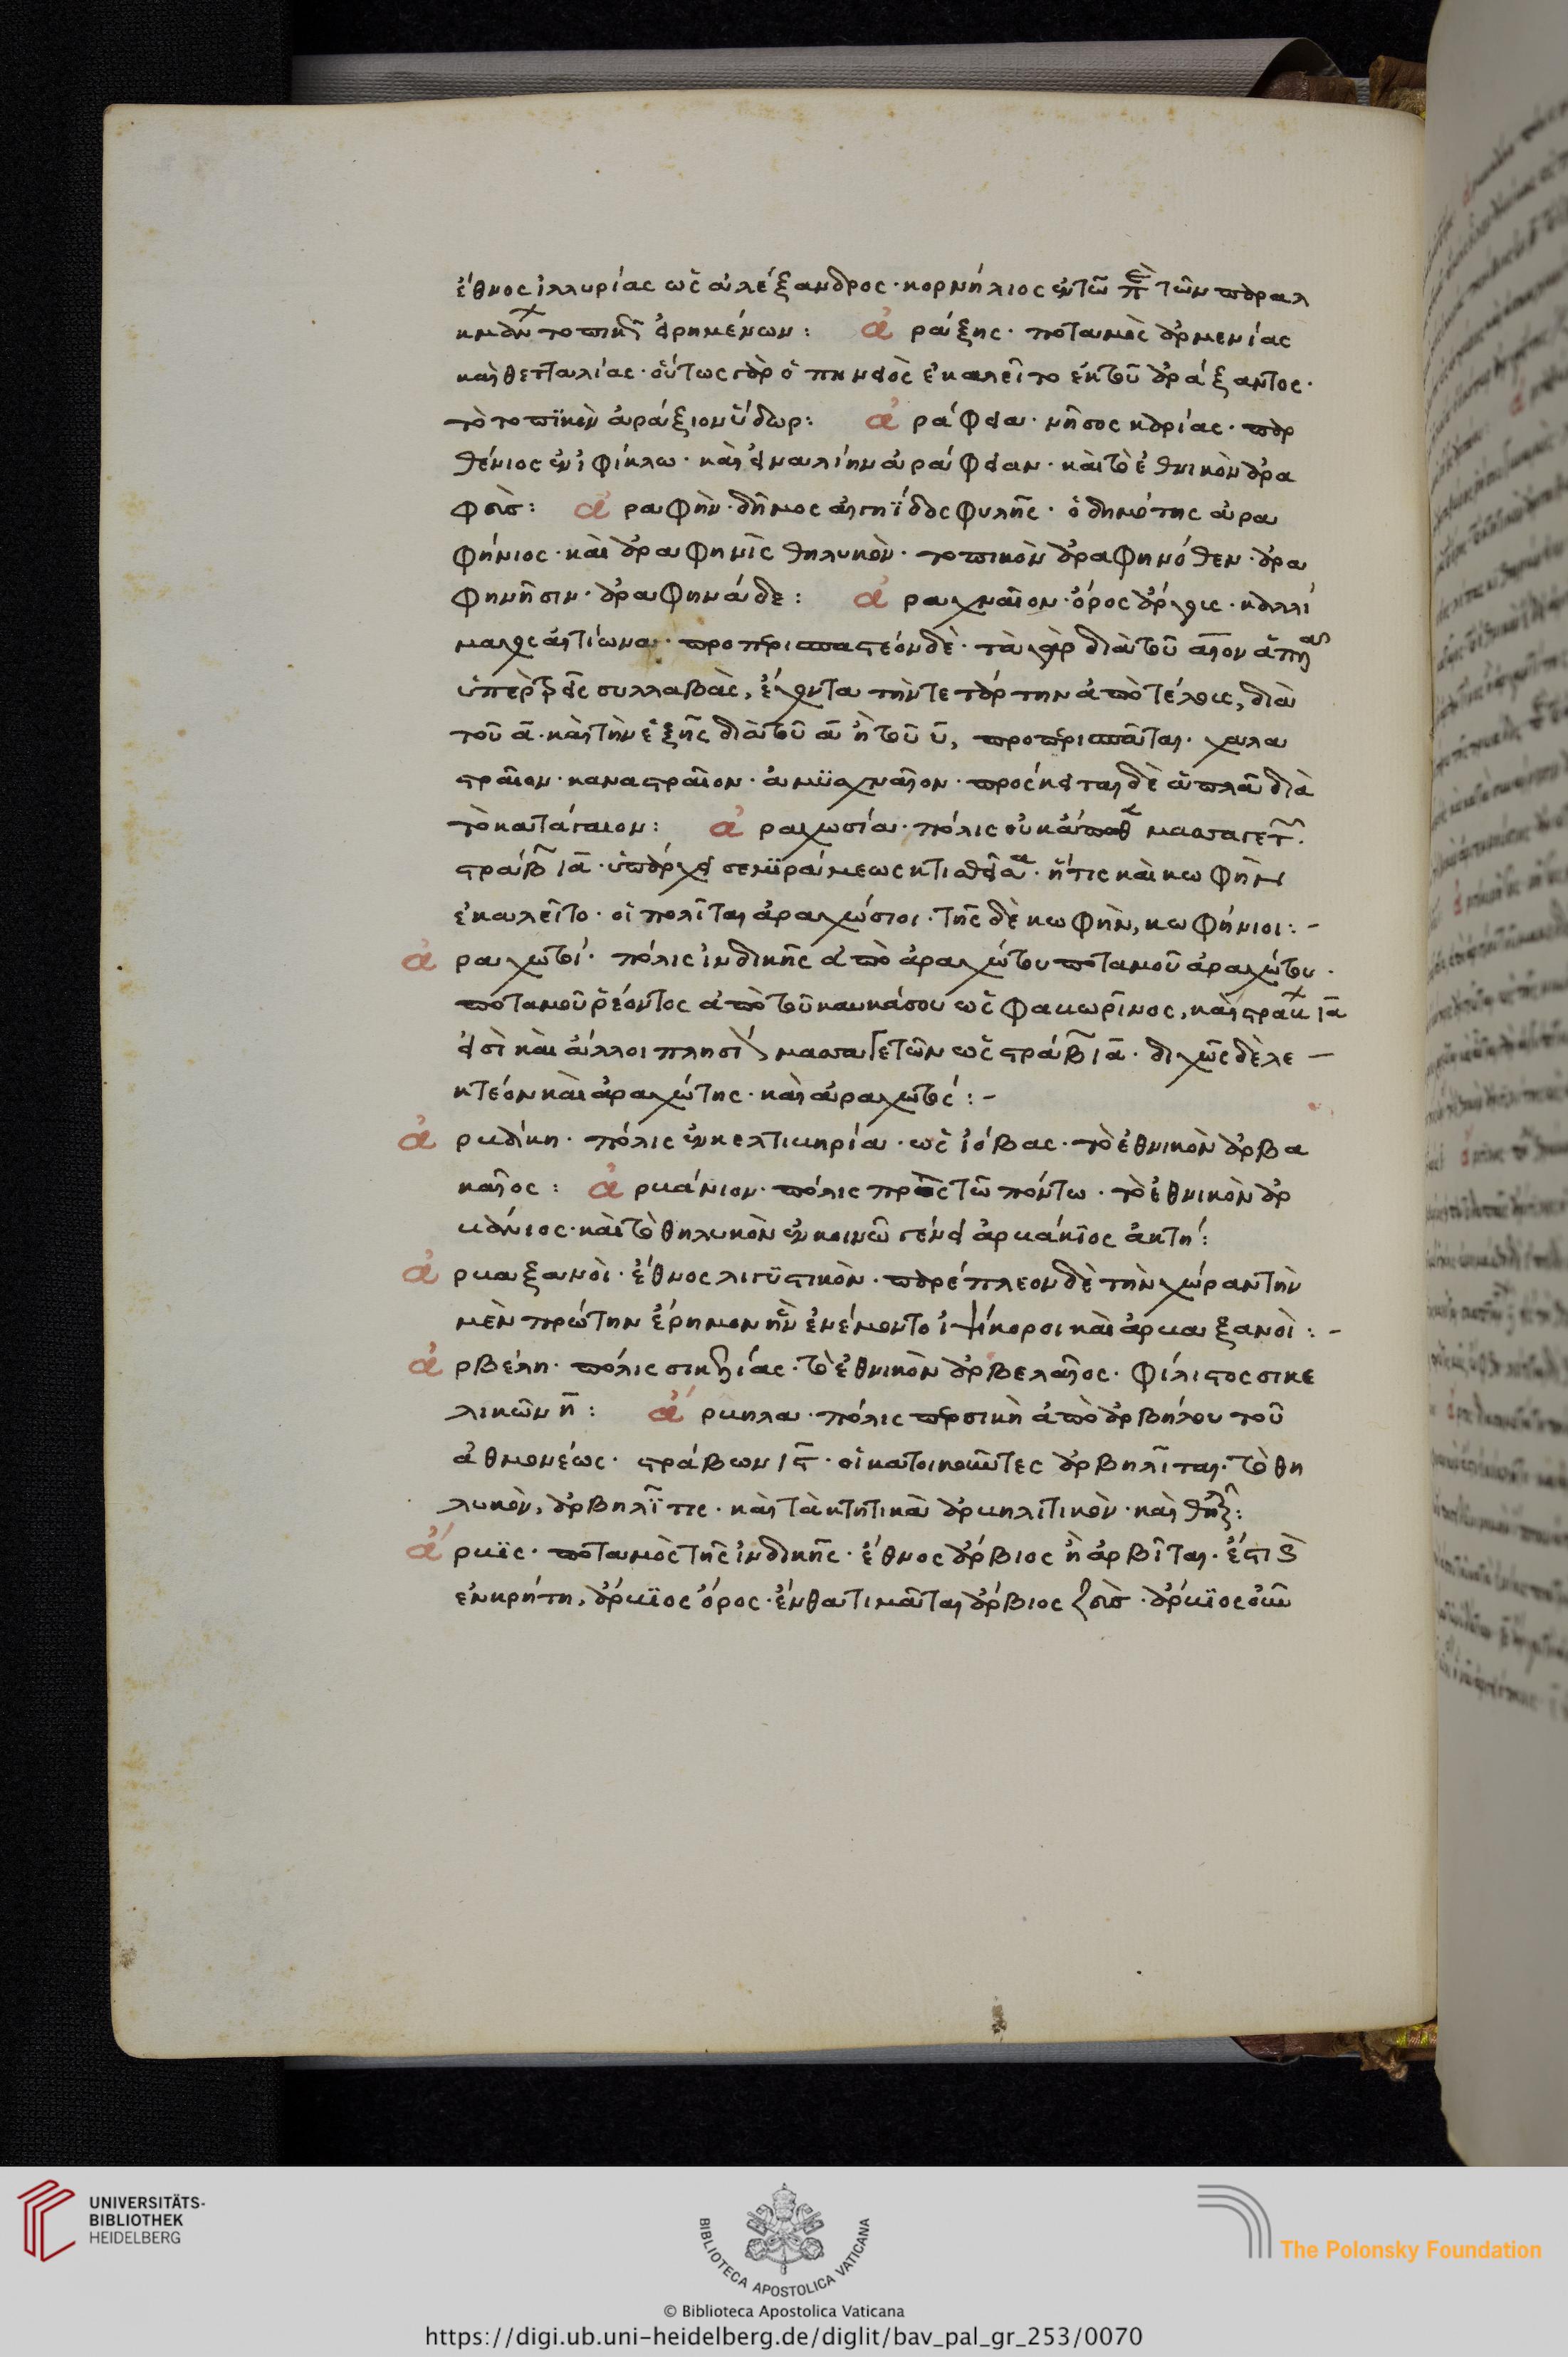 ἔθνος ἰλλυρίας ὡς ἀλέξανδρος· κορνήλιος ἐν τῷ περὶ τῶν παρ' ἀλ
κμᾶνι τοπικῶς εἰρημένων: ἀράξης· ποταμὸς ἀρμενίας
καὶ θετταλίας· οὕτως γὰρ ὁ πηνειὸς ἐκαλεῖτο ἐκ τοῦ ἀράξαντος·
τὸ τοπϊκὸν ἀράξιον ὕδωρ: ἀράφεια· νῆσος καρίας· παρ
θένιος ἐν ἰφίκλω· καὶ εἰναλίην ἀράφειαν· καὶ τὸ ἐθνικὸν ἀρα
φεύς: ἀραφὴν· δῆμος αἰγηΐδος φυλῆς· ὁ δημότης ἀρα
φήνιος· καὶ ἀραφηνὶς θηλυκὸν· τοπικὸν ἀραφηνόθεν· ἀρα
φηνῆσιν· ἀραφηνάδε: ἀραχναῖον· ὄρος ἄργους· καλλί
μαχος αἰτίων α· προπερισπαστέον δὲ· τὰ γὰρ διὰ τοῦ αιον ἅπαντα
ὑπὲρ τρεῖς συλλαβὰς, ἔχοντα τήν τε τάρτην ἀπὸ τέλους, διὰ
τοῦ α· καὶ τὴν ἑξῆς διὰ τοῦ α ἢ τοῦ υ, προπερισπᾶται· χαλα
στραῖον· καναστραῖον· ἀμϋχναῖον· πρόσκειται δὲ ἁπλᾶ διὰ
τὸ κατάγαιον: ἀραχωσία· πόλις οὐκ ἄποθεν μασσαγετῶν·
στράβων ια· ὑπάρχει σεμϊράμεως κτισθεῖσα· ἥτις καὶ κωφὴν
ἐκαλεῖτο· οἱ πολῖται ἀραχώσιοι· τῆς δὲ κωφὴν, κωφήνιοι:-
ἀραχωτοί· πόλις ἰνδικῆς ἀπὸ ἀραχώτου ποταμοῦ ἀραχώτου·
ποταμοῦ ῥέοντος ἀπὸ τοῦ καυκάσου ὡς φαυωρῖνος, καὶ στράβων ια
εἰσὶ καὶ ἄλλοι πλησίον μασσαγετῶν ὡς στράβων ια· διχῶς δὲ λε-
κτέον καὶ ἀραχώτης· καὶ ἀραχωτός:-
ἀρυάκη· πόλις ἐν κελτιυηρία· ὡς ἰόβας· τὸ ἐθνικὸν ἀρβα
καῖος: ἀρυάνιον· πόλις πρὸς τῷ πόντω· τὸ ἐθνικὸν ἀρ
υάνιος· καὶ τὸ θηλυκὸν ἐν κοινῷ γένει ἀρυάνιος ἀκτή:
ἀρυαξανοὶ· ἔθνος λιγϋστικὸν· παρέπλεον δὲ τὴν χώραν τὴν
μὲν πρώτην ἔρημον ἣν ἐνέμοντο ἰψίκοροι καὶ ἀρυαξανοὶ:-
ἀρβέλη· πόλις σικελίας· τὸ ἐθνικὸν ἀρβελαῖος· φίλιστος σικε
λικῶν η: ἄρυηλα· πόλις περσικὴ ἀπὸ ἀρβήλου τοῦ
ἀθμονέως· στράβων ις· οἱ κατοικοῦντες ἀρβηλῖται· τὸ θη
λυκὸν, ἀρβηλῖτις· καὶ τὰ κτητικὰ ἀρυηλιτικὸν· καὶ ἑξῆς:
ἄρυϊς· ποταμὸς τῆς ἰνδικῆς· ἔθνος ἄρβιος ἢ ἀρβῖται· ἔστι καὶ
ἐν κρήτη, ἄρυϊος ὄρος· ἔνθα τιμᾶται ἄρβιος ζεύς· ἄρυϊος οὖν
UNIVERSITÄTS-
BIBLIOTHEK
HEIDELBERG
BIBLIOTECA APOSTOLICA VATICANA
The Polonsky Foundation
© Biblioteca Apostolica Vaticana
https://digi.ub.uni-heidelberg.de/diglit/bav_pal_gr_253/0070